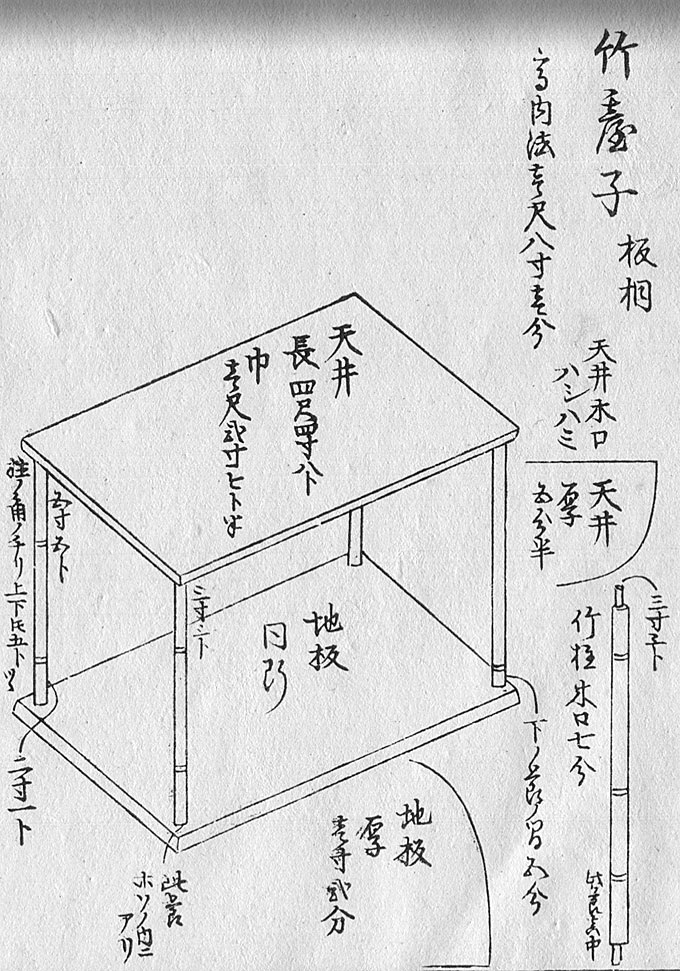 竹臺子 板桐
高内法壱尺八寸壱分
天井木口
ハシハミ
天井
厚
五分半
三寸三ト
竹柱木口七分
天井
長四尺四寸八ト
巾
壱尺弐寸七ト半
五寸五ト
柱ノ角ノチリ上下氏五トツヽ
三寸三ト
地板
同断
二寸一ト
下ノ節ヨリ五分
地板
厚
壱寸弐分
此節
ホソノ内ニ
アリ